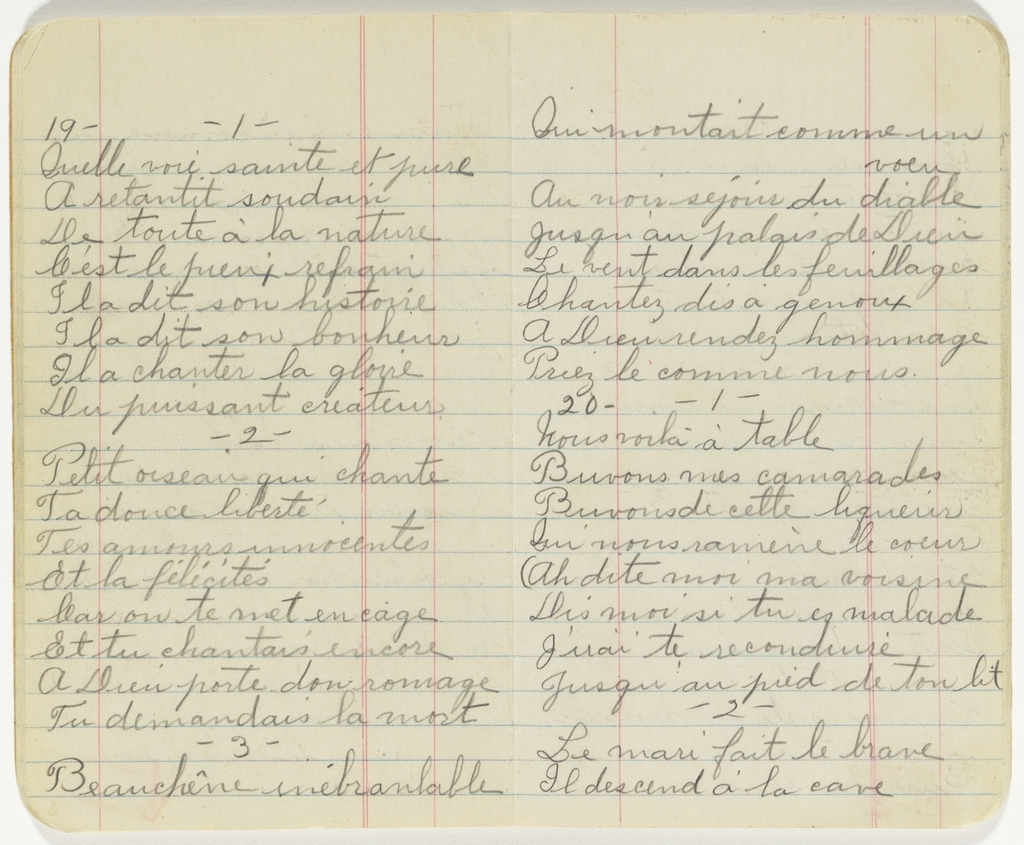 19- -1-
Quelle voie sainte et pure
A retantit soudain
De toute à la nature
C'est le pieux refrain
Il a dit son histoire
Il a dit son bonheur
Il a chanter la gloire
Du puissant createur.
-2-
Petit oiseau qui chante
Ta douce liberté
Tes amours innocentes
Et la félécités
Car on te met en cage
Et tu chantais encore
A Dieu porte don romage
Tu demandais la mort
-3-
Beau chêne inébranlable
Qui montait comme un
voeu
Au noir séjour du diable
Jusqu'au palais de Dieu
Le vent dans les feuillages
Chantez dis à genoux
A Dieu rendez hommage
Priez le comme nous.
20- -1-
Nous voilà à table
Buvons mes camarades
Buvons de cette liqueur
Qui nous ramène le coeur
(Ah dite moi ma voisine
Dis moi si tu es malade
J'irai te reconduire
Jusqu'au pied de ton lit
-2-
Le mari fait le brave
Il descend à la cave